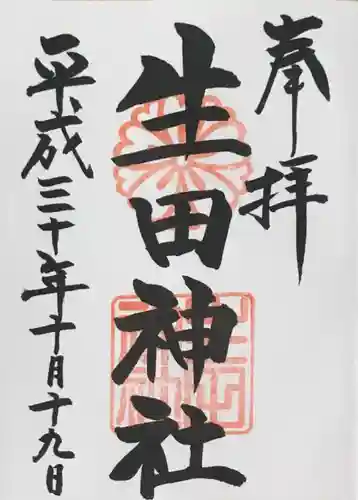 奉拝
生田神社
平成三十年十月十九日